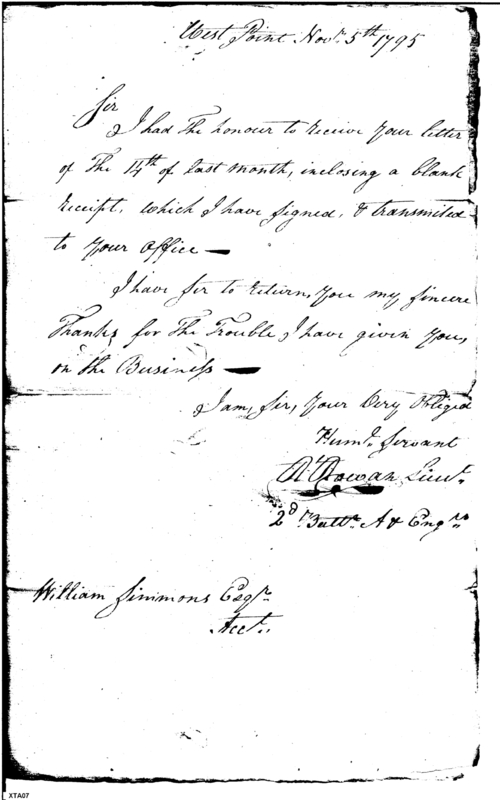 West Point Novr. 5th 1795
Sir
I had The honour to receive Your letter
of The 14th of last month, inclosing a blank
receipt, which I have signed, & transmited
to Your Office —
I have Sir to return, You my sincere
Thanks for The Trouble I have given You,
on the Business —
I am, Sir, Your Very Obliged
Humle. Servant
Rowan Lieut.
2d Battn. A & Engrs
William Simmons Esqr.
Acct.
XTA07